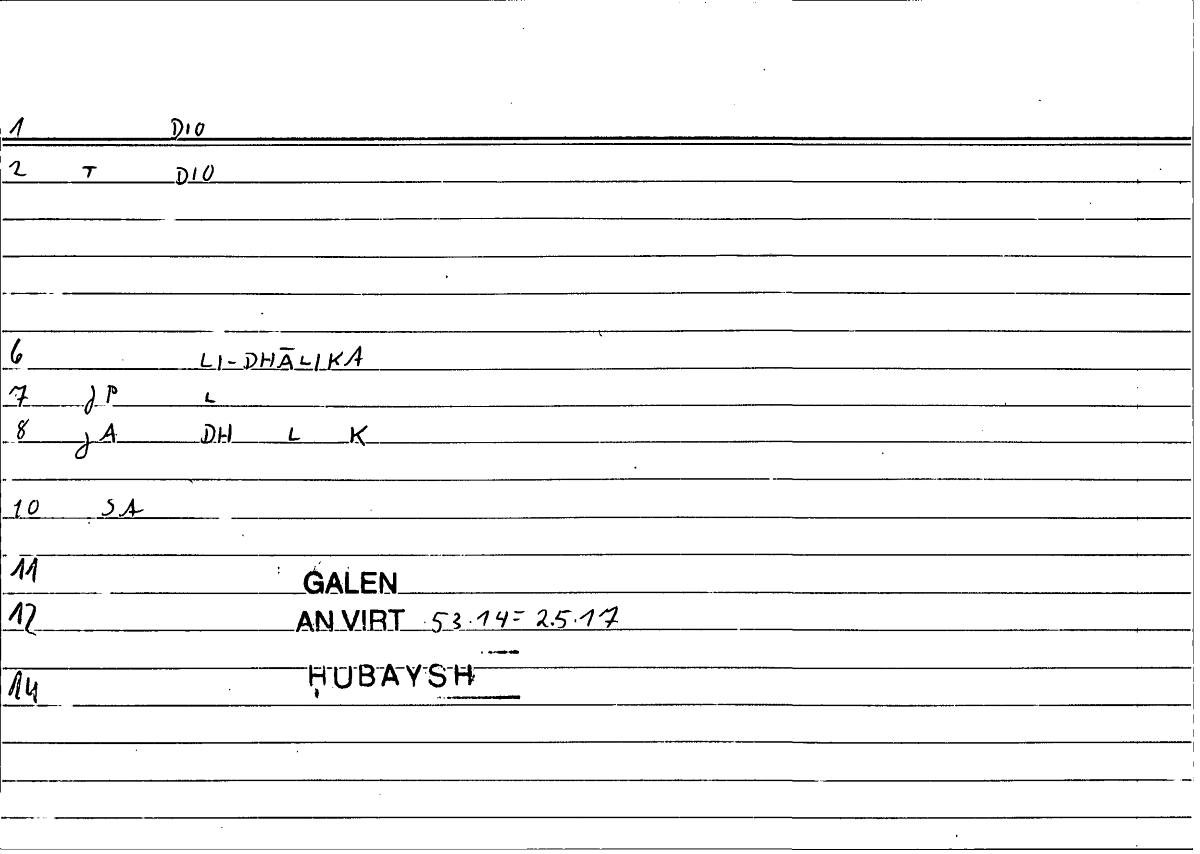 1 DIO
2 T DIO
6 LI-DHĀLIKA
7 JP L
8 JA DH L K
10 SA
11 GALEN
12 AN VIRT 53.14= 25.17
14 ḤUBAYSH